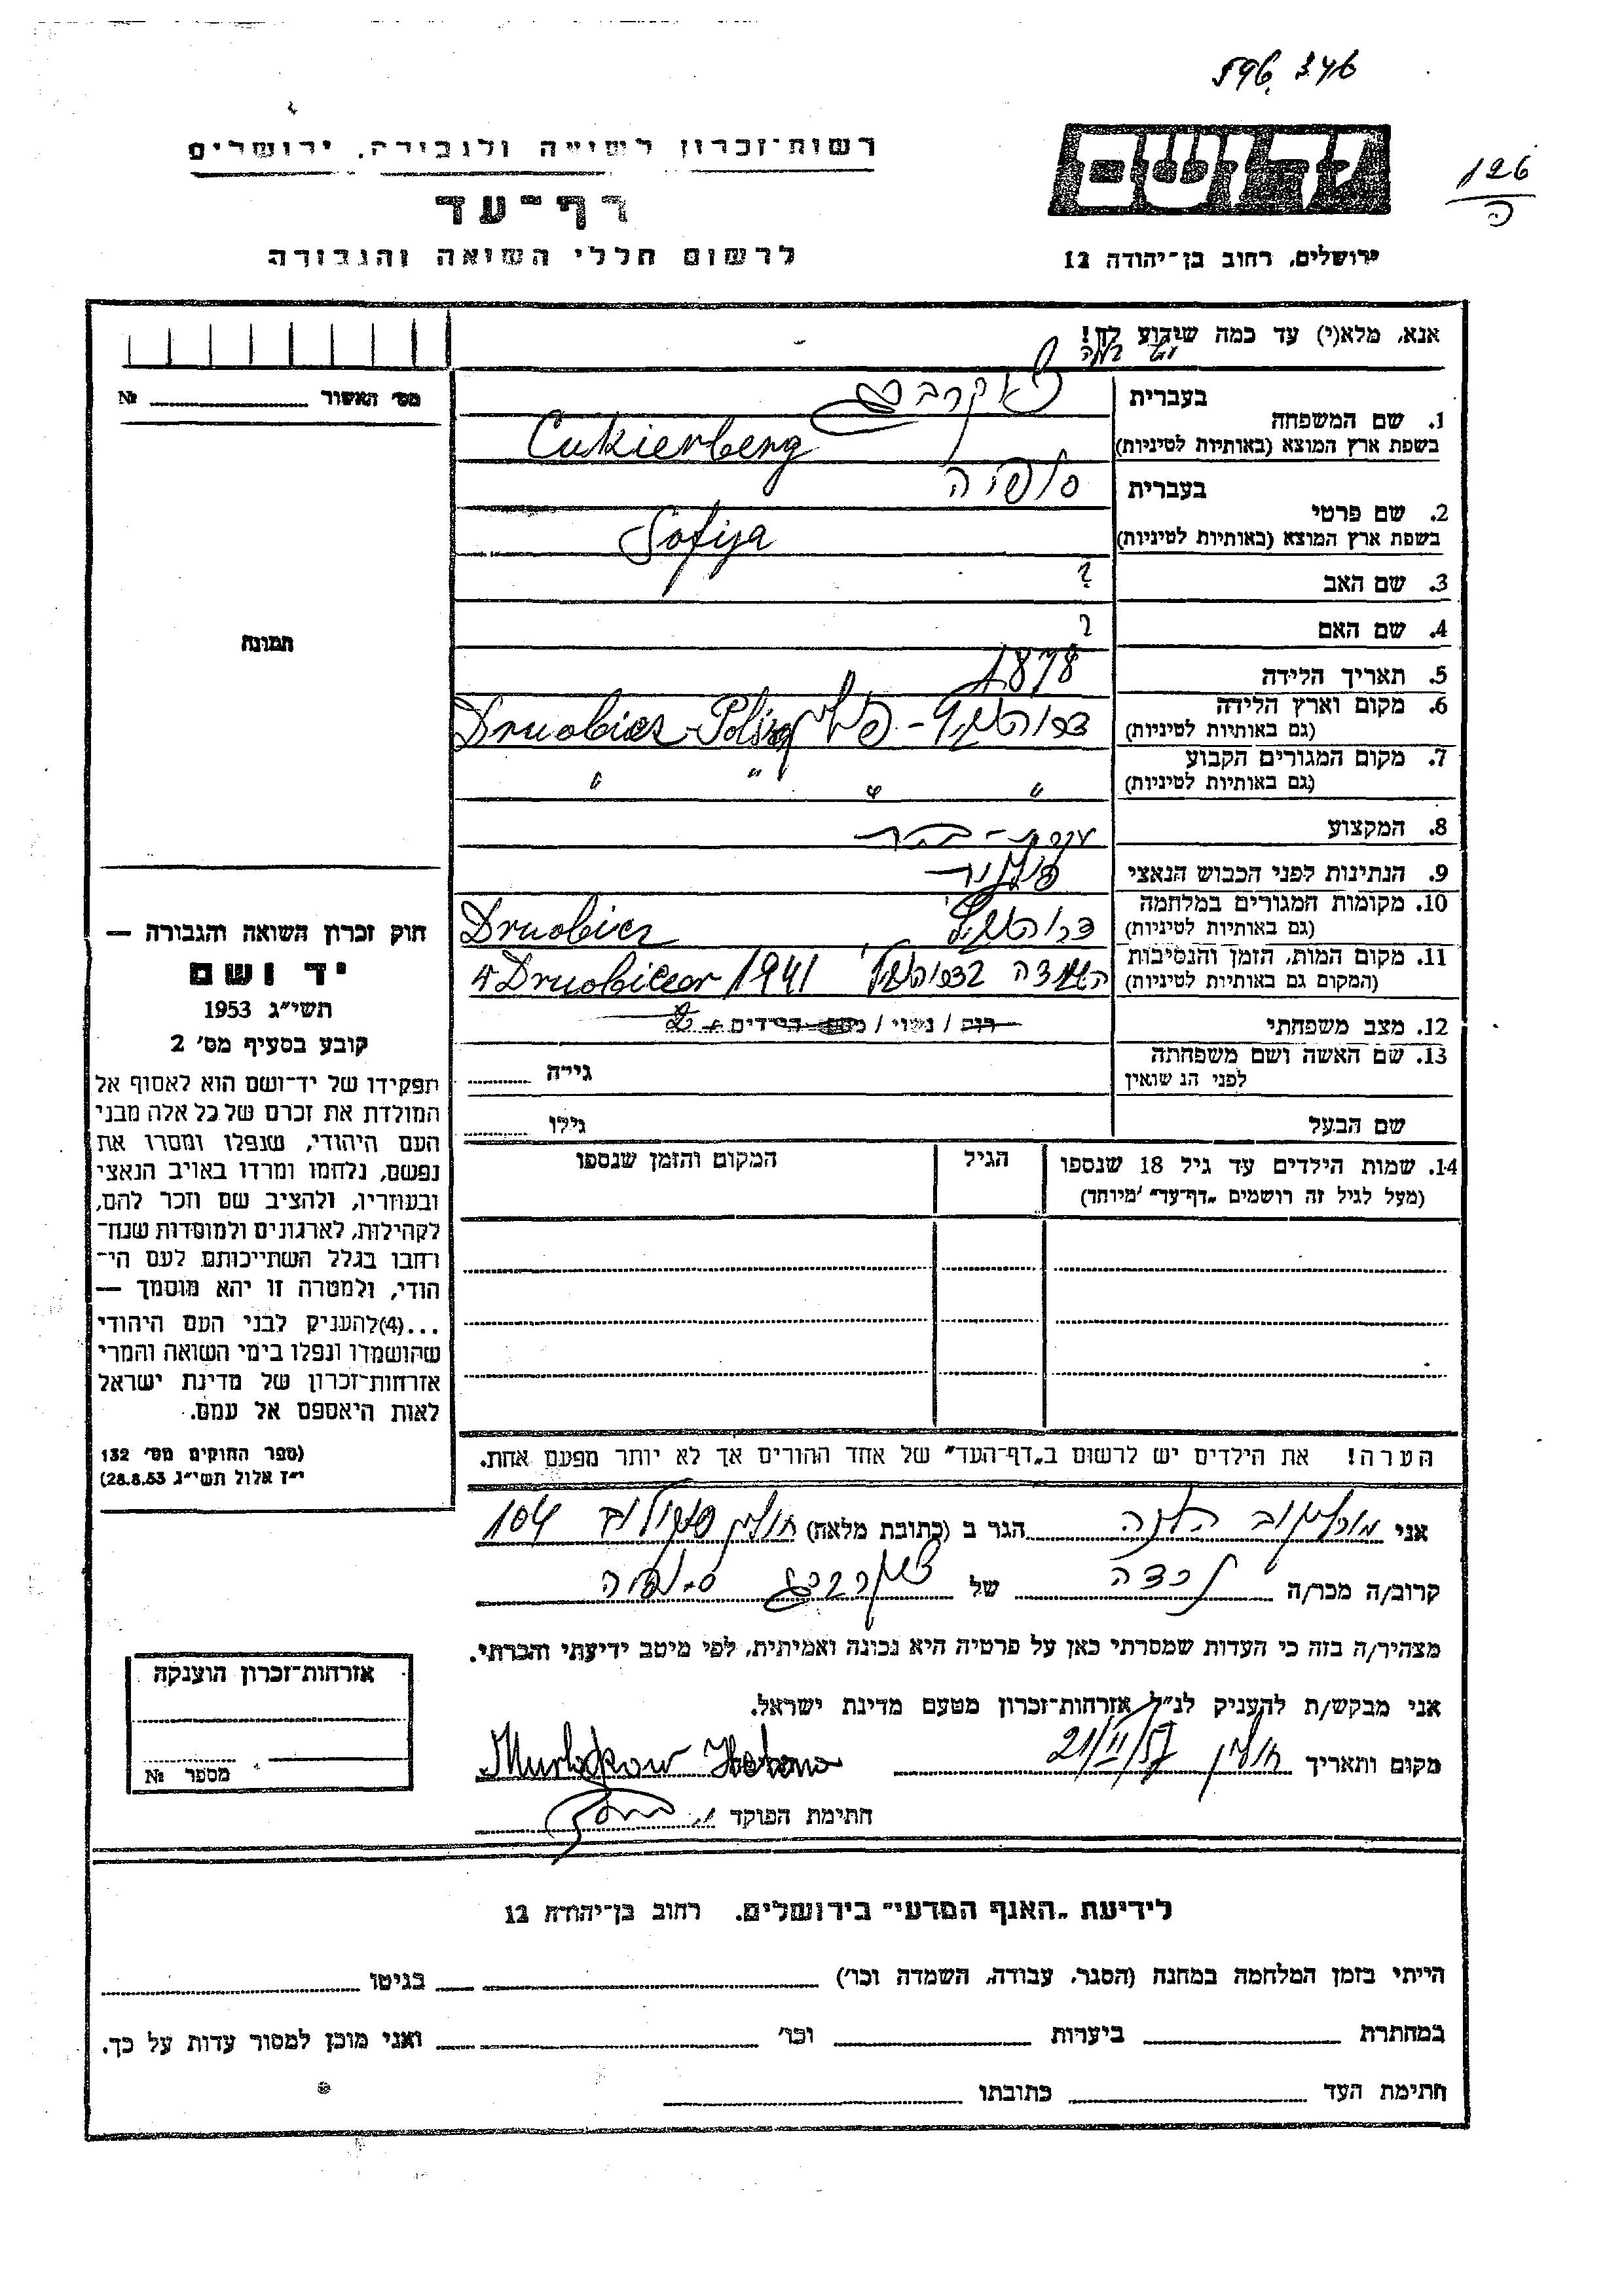 596.346
126
ה
יד ושם
רשות-זכרון לשואה ולגבורה, ירושלים
דף-עד
לרשום חללי השואה והגבורה
ירושלים, רחוב בן-יהודה 12
אנא, מלא(י) עד כמה שידוע לך!
מס' האשור № 
1. שם המשפחה
בעברית
בשפת ארץ המוצא (באותיות לטיניות)
Cukierberg
2. שם פרטי
בעברית סופיה
בשפת ארץ המוצא (באותיות לטיניות)
Sofija
3. שם האב ?
4. שם האם ?
תמונה
5. תאריך הלידה 1878
6. מקום וארץ הלידה
(גם באותיות לטיניות)
7. מקום המגורים הקבוע
(גם באותיות לטיניות)
" " " "
8. המקצוע עקרת-בית
9. הנתינות לפני הכבוש הנאצי
10. מקומות המגורים במלחמה
(גם באותיות לטיניות)
Druobicz
11. מקום המות, הזמן והנסיבות
(המקום גם באותיות לטיניות)
1941
12. מצב משפחתי
רוק / נשוי / מספר הילדים 2
13. שם האשה ושם משפחתה
לפני הנשואין
גילה
שם הבעל
גילו
14. שמות הילדים עד גיל 18 שנספו
(מעל לגיל זה רושמים "דף-עד" מיוחד)
הגיל
המקום והזמן שנספו
הערה! את הילדים יש לרשום ב"דף-העד" של אחד ההורים אך לא יותר מפעם אחת.
חוק זכרון השואה והגבורה —
יד ושם
תשי"ג 1953
קובע בסעיף מס' 2
תפקידו של יד-ושם הוא לאסוף אל
המולדת את זכרם של כל אלה מבני
העם היהודי, שנפלו ומסרו את
נפשם, נלחמו ומרדו באויב הנאצי
ובעוזריו, ולהציב שם וזכר להם,
לקהילות, לארגונים ולמוסדות שנח-
רחבו בגלל השתייכותם לעם הי-
הודי, ולמטרה זו יהא מוסמך —
...(4)להעניק לבני העם היהודי
שהושמדו ונפלו בימי השואה והמרי
אזרחות-זכרון של מדינת ישראל
לאות היאספם אל עמם.
(ספר החוקים מס' 132
י"ז אלול תשי"ג 28.8.53)
אני הגר ב (כתובת מלאה) חולון סוקולוב 104
קרוב/ה מכר/ה נכדה של צוקרברג סופיה
מצהיר/ה בזה כי העדות שמסרתי כאן על פרטיה היא נכונה ואמיתית, לפי מיטב ידיעתי והכרתי.
אני מבקש/ת להעניק לנ"ל אזרחות-זכרון מטעם מדינת ישראל.
מקום ותאריך חולון 21/II/57
חתימת הפוקד
אזרחות-זכרון הוענקה
מספר №
לידיעת "האגף המדעי" בירושלים. רחוב בן-יהודה 12
הייתי בזמן המלחמה במחנה (הסגר, עבודה, השמדה וכו') בגיטו
במחתרת ביערות וכו' ואני מוכן למסור עדות על כך.
חתימת העד כתובתו